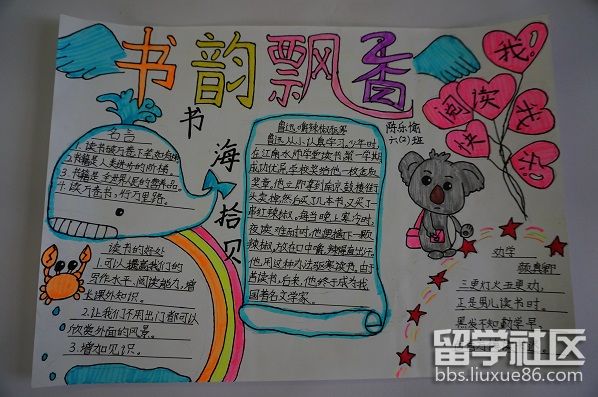 书韵飘香
书海拾贝
我
阅读
快乐
陈乐倩
六(2)班
名言
1.读书破万卷下笔如有神
2.书籍是人类进步的阶梯。
3.书籍是全世界人民的营养品。
4.读万卷书,行万里路。
读书的好处
1.可以提高我们的
写作水平、阅读能力、增
长课外知识。
2.让我们不用出门都可以
欣赏外面的风景。
3.增加见识。
鲁迅嚼辣椒驱寒
鲁迅从小认真学习。少年时,
在江南水师学堂读书,第一学期
成绩优异,学校奖给他一枚金
奖章。他立即拿到南京鼓楼街
头卖掉,然后买了几本书,又买了一
串红辣椒。每当晚上寒冷时,
夜读难耐时,他便摘下一颗
辣椒,放在口中嚼,辣得直出汗。
他用这种办法驱寒读书。由于
苦读书,后来,他终于成为我
国著名文学家。
劝学
颜真卿
三更灯火五更鸡,
正是男儿读书时。
黑发不知勤学早,
留学社区
bbs.liuxue86.com